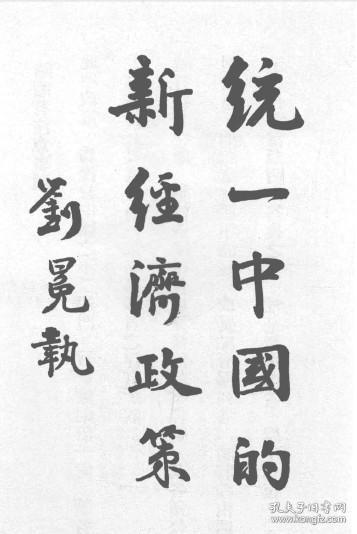 统一中國的
新經濟政策
劉冕執
孔夫子旧书网
www.kongfz.com